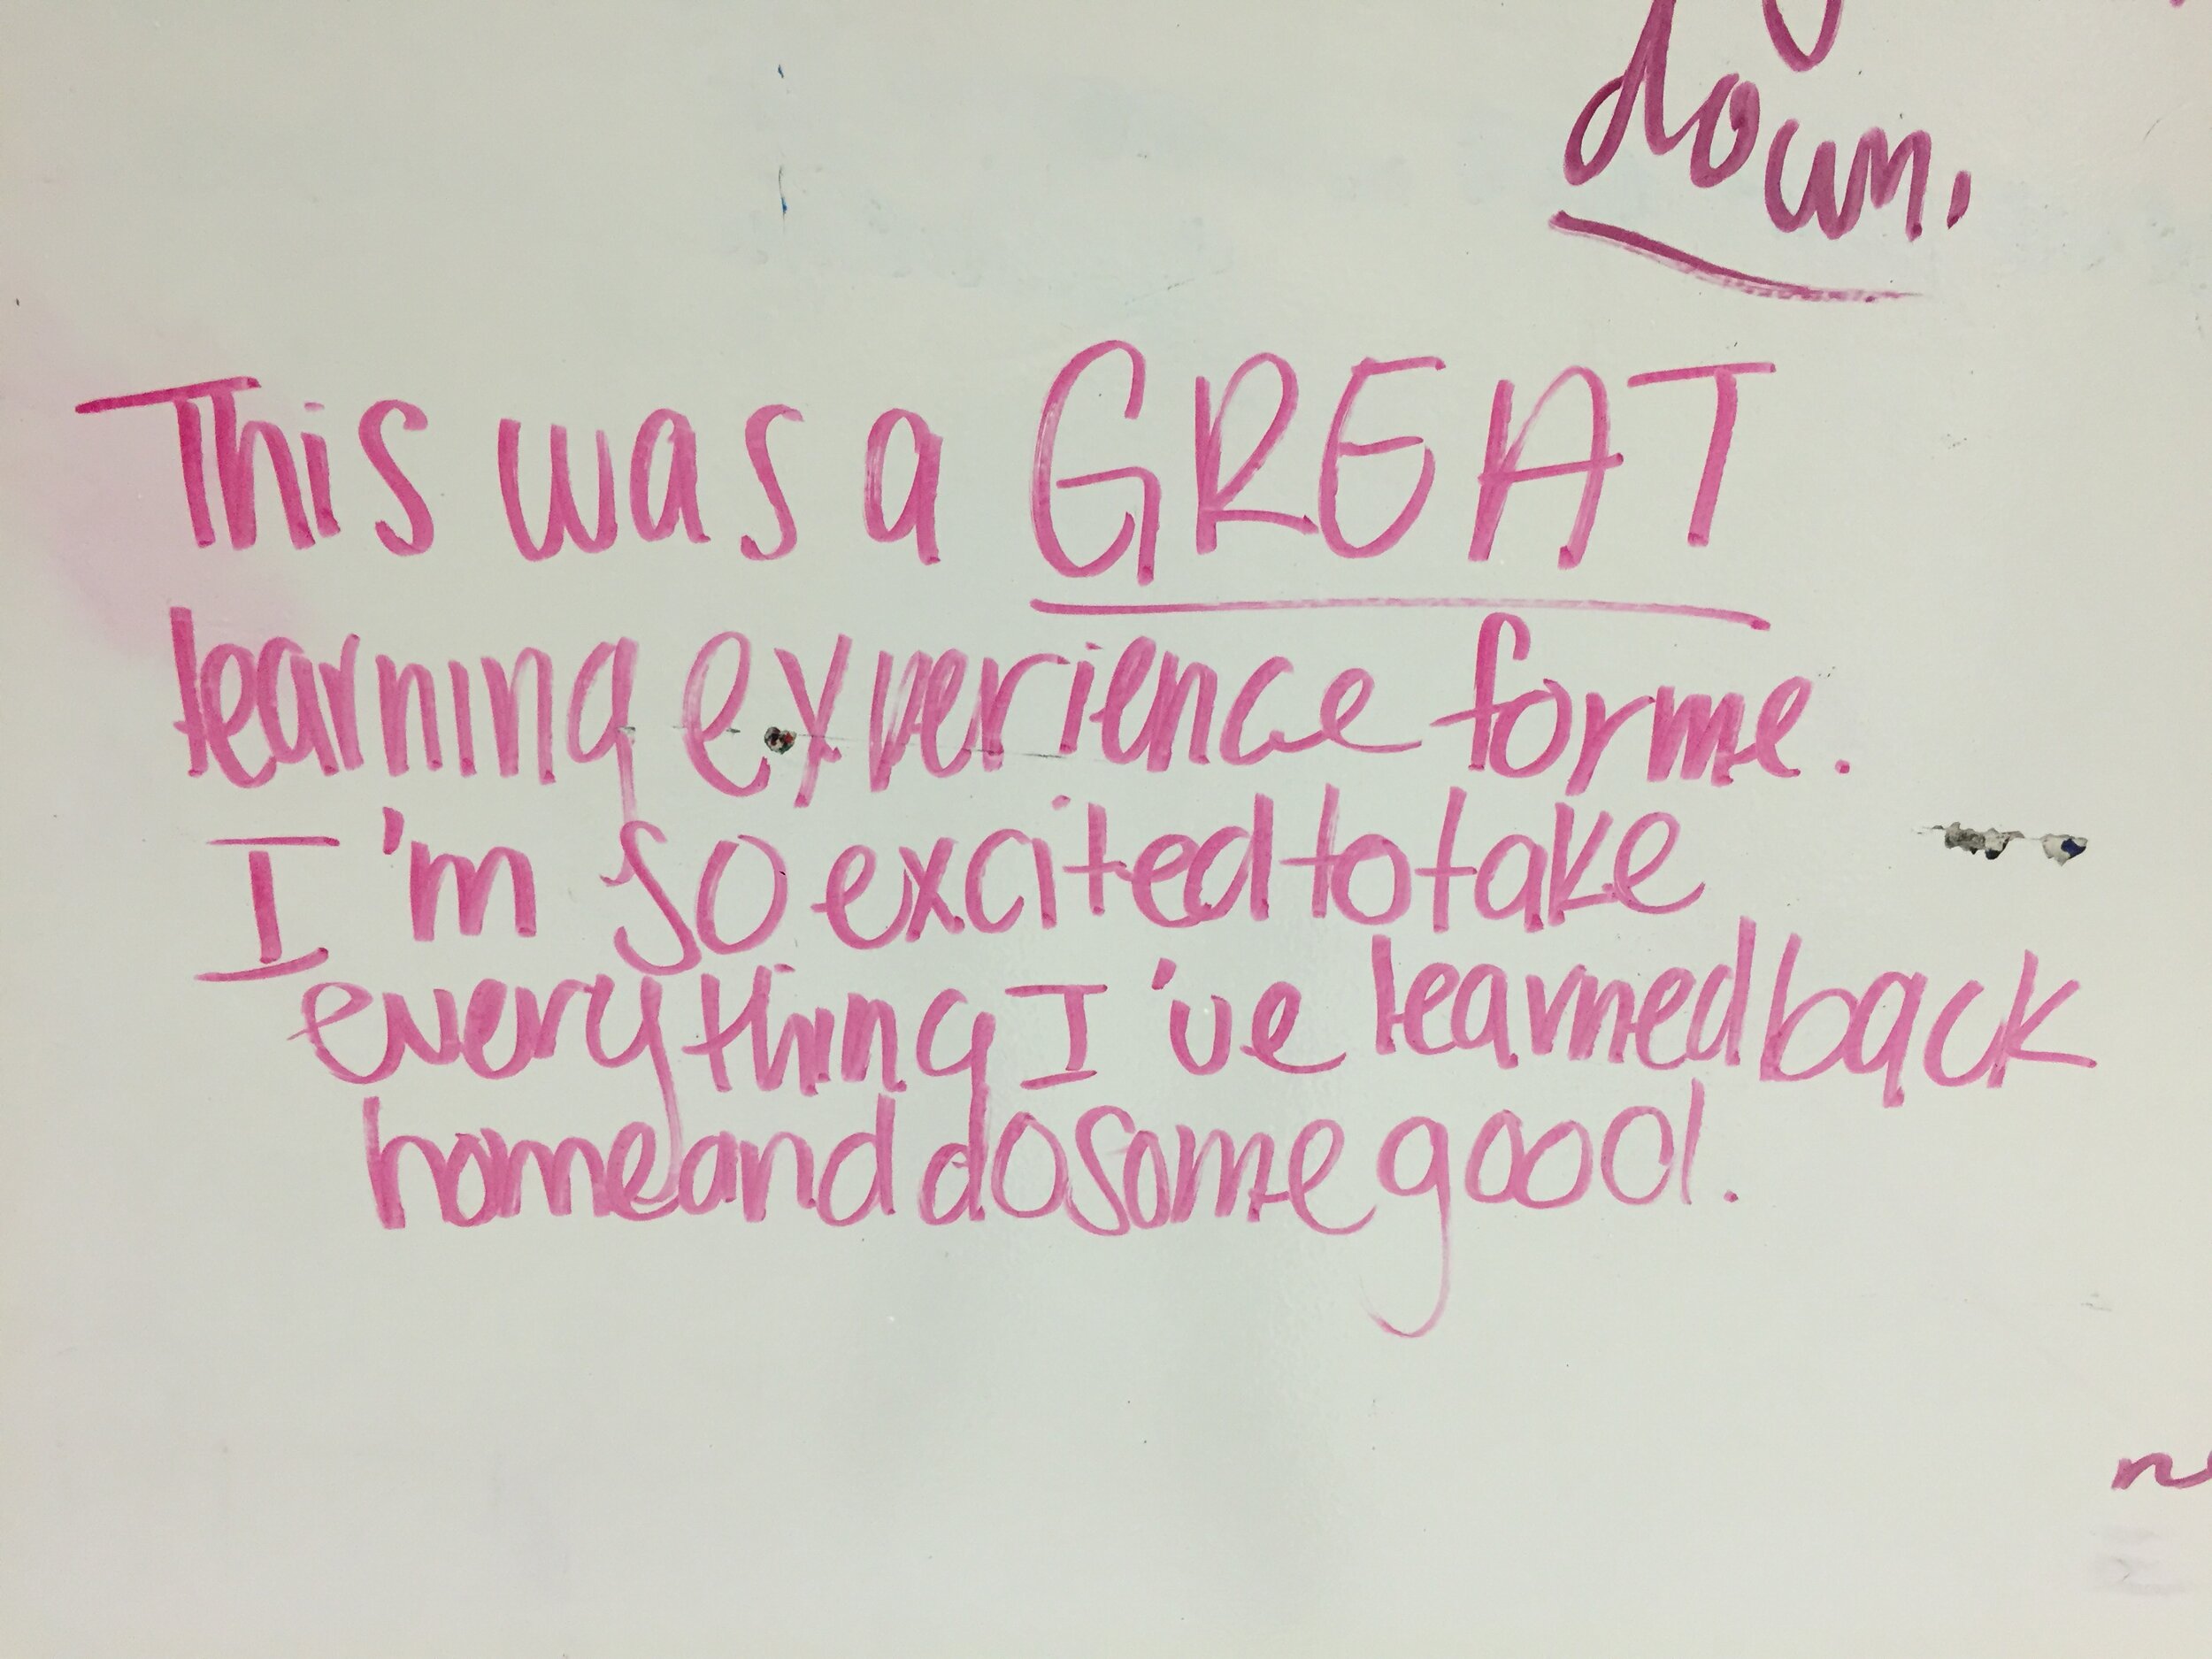 down.
This was a GREAT
learning experience for me.
I'm so excited to take
everything I've learned back
home and do some good.